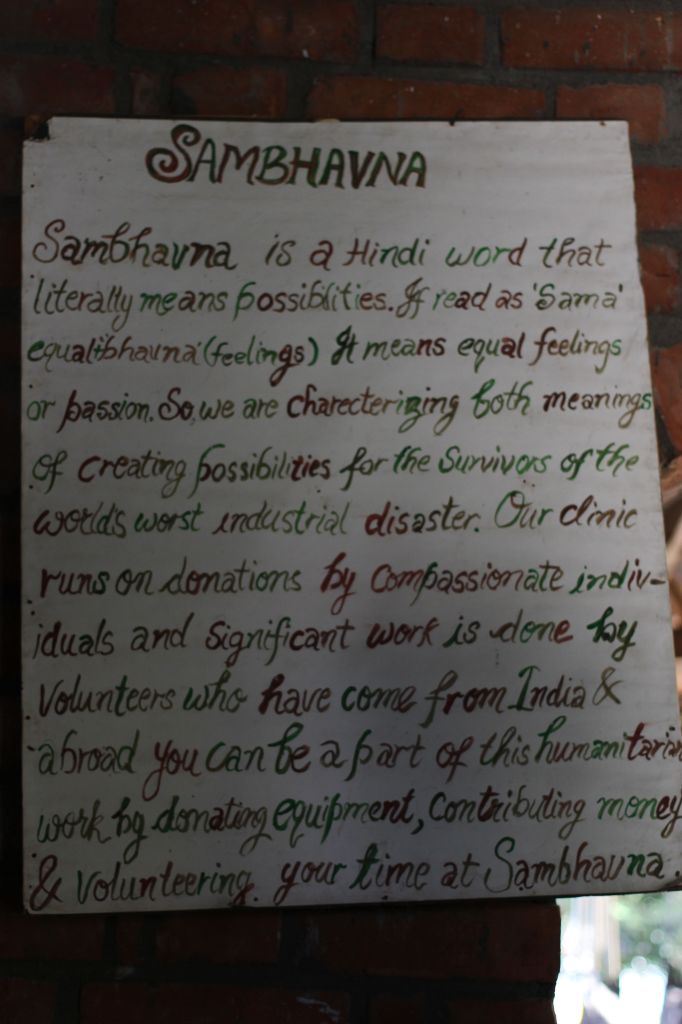 SAMBHAVNA
Sambhavna is a Hindi word that
literally means possibilities. If read as 'Sama'
equal+bhavna' (feelings) It means equal feelings
or passion. So, we are charecterizing both meanings
of creating possibilities for the Survivors of the
world's worst industrial disaster. Our clinic
runs on donations by Compassionate indiv-
iduals and significant work is done by
Volunteers who have come from India &
abroad you can be a part of this humanitarian
work by donating equipment, Contributing money
& volunteering. your time at Sambhavna.